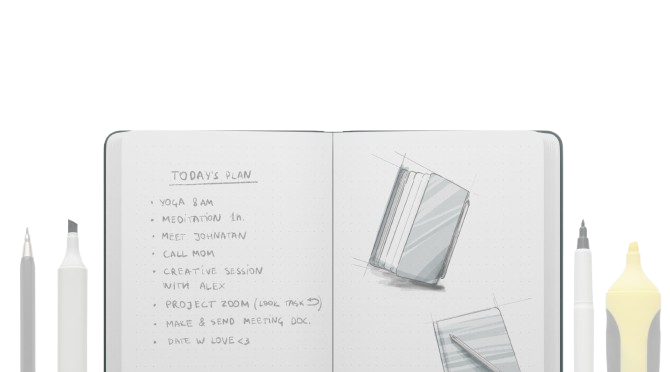 TODAY'S PLAN
• YOGA 8 AM
• MEDITATION 1h.
• MEET JOHNATAN
• CALL MOM
• CREATIVE SESSION
WITH ALEX
• PROJECT ZOOM (LOOK TASK)
• MAKE & SEND MEETING DOC.
• DATE W LOVE <3